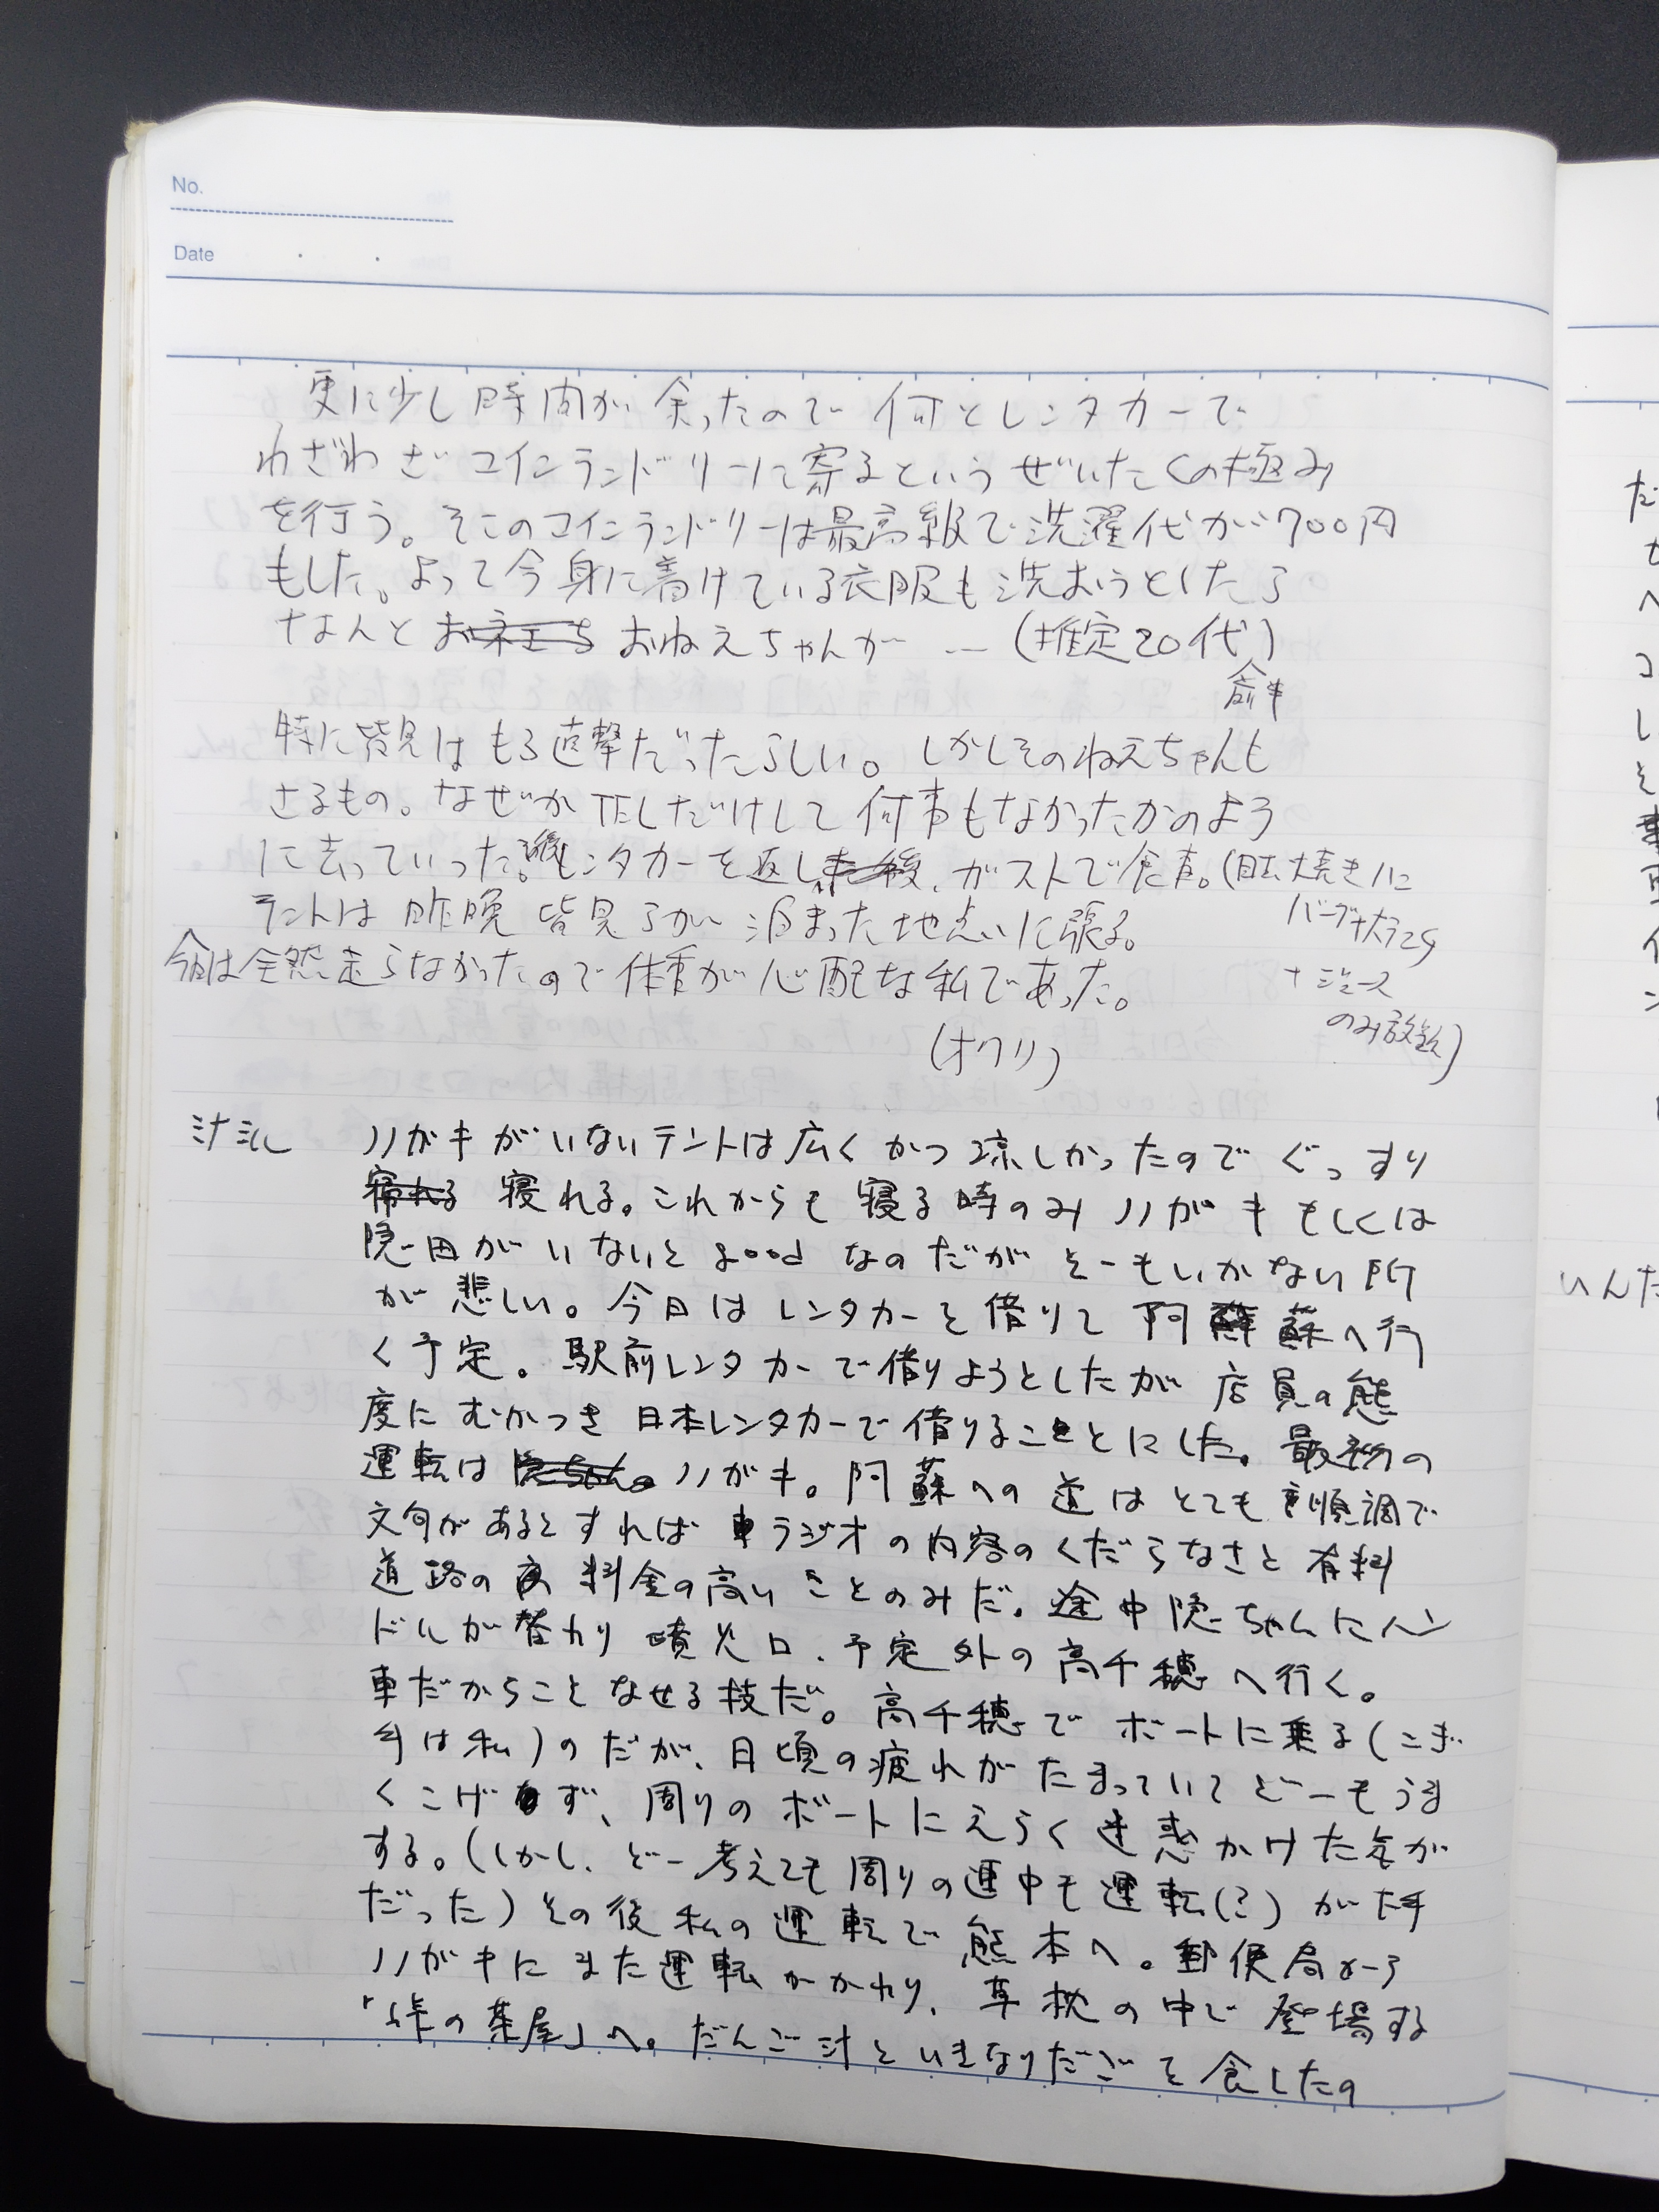 No.
Date
更に少し時間が余ったので何とレンタカーで
わざわざコインランドリーに寄るというぜいたくの極み
を行う。そこのコインランドリーは最高級で洗濯代が700円
もした。よって今身に着けている衣服も洗おうとしたら
なんと おねえちゃんが … (推定20代)
特に皆見はもろ直撃だったらしい。しかしそのねえちゃんも
さるもの。なぜか だけして何事もなかったかのよう
に去っていった。レンタカーを返し後、ガストで食事。(目玉焼きハン
バーグ+大ライス
+ジュース
のみ放題)
テントは昨晩皆見らが泊まった地点に張る。
今日は全然走らなかったので体重が心配な私であった。
(オワリ)
ハガキがいないテントは広くかつ涼しかったのでぐっすり
寝れる。これからも寝る時のみハガキもしくは
隠田がいないとgoodなのだがそーもいかない所
が悲しい。今日はレンタカーを借りて阿蘇へ行
く予定。駅前レンタカーで借りようとしたが店員の態
度にむかつき日本レンタカーで借りることにした。最初の
運転は ハガキ。阿蘇への道はとても順調で
文句があるとすれば車ラジオの内容のくだらなさと有料
道路の料金の高いことのみだ。途中隠ちゃんにハン
ドルが替わり噴火口、予定外の高千穂へ行く。
車だからことなせる技だ。高千穂でボートに乗る(こぎ
手は私)のだが、日頃の疲れがたまっていてどーもうま
くこげず、周りのボートにえらく迷惑かけた気が
する。(しかし、どー考えても周りの連中も運転(?)が下手
だった)その後私の運転で熊本へ。郵便局から
ハガキにまた運転かかわり、草枕の中で登場する
「峠の茶屋」へ。だんご汁といきなりだごを食したの